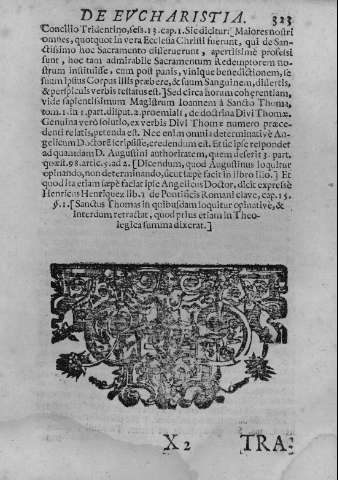 DE EVCHARISTIA. 323
Concilio Tridentino, sess. 13. cap. 1. Sic dicitur [Maiores nostri
omnes, quotquot in vera Ecclesia Christi fuerunt, qui de San-
ctissimo hoc Sacramento disseruerunt, apertissimè professi
sunt, hoc tam admirabile Sacramentum Redemptorem no-
strum instituisse, cùm post panis, vinique benedictionem, se
suum ipsius Corpus illis præbere, & suum Sanguinem, disertis,
& perspicuis verbis testatus est.] Sed circa horum cohærentiam,
vide sapientissimum Magistrum Ioannem à Sancto Thoma,
tom. 1. in 1. part. disput. 2. proemiali, de doctrina Divi Thomæ.
Genuina verò solutio, ex verbis Divi Thomæ numero præce-
denti relatis, petenda est. Nec enim omnia determinativè An-
gelicum Doctorem scripsisse, credendum est. Et sic ipse respondet
ad quandam D. Augustini authoritatem, quem deserit 3. part.
quæst. 98. artic. 5. ad 2. [Dicendum, quod Augustinus loquitur
opinando, non determinando, sicut sæpè facit in libro illo.] Et
quod ita etiam sæpè faciat ipse Angelicus Doctor, dicit expressè
Henricus Henriquez lib. 2 de Pontificis Romani clave, cap. 15.
§. 1. [Sanctus Thomas in quibusdam loquitur opinativè, &
interdum retractat, quod prius etiam in Theo-
logica summa dixerat.]
X 2 TRA-